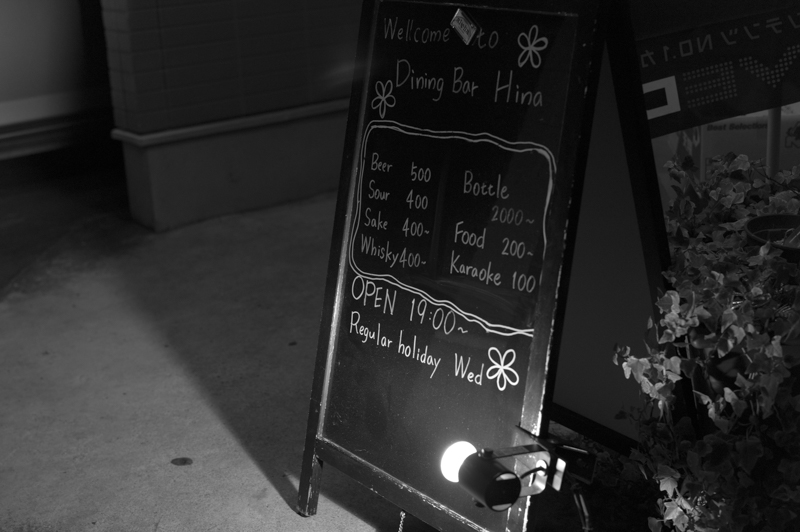 Welcome to
Dining Bar Hina
Beer 500
Sour 400
Sake 400~
Whisky 400~
Bottle
2000~
Food 200~
Karaoke 100
OPEN 19:00~
Regular holiday Wed
テンツ NO.1カ